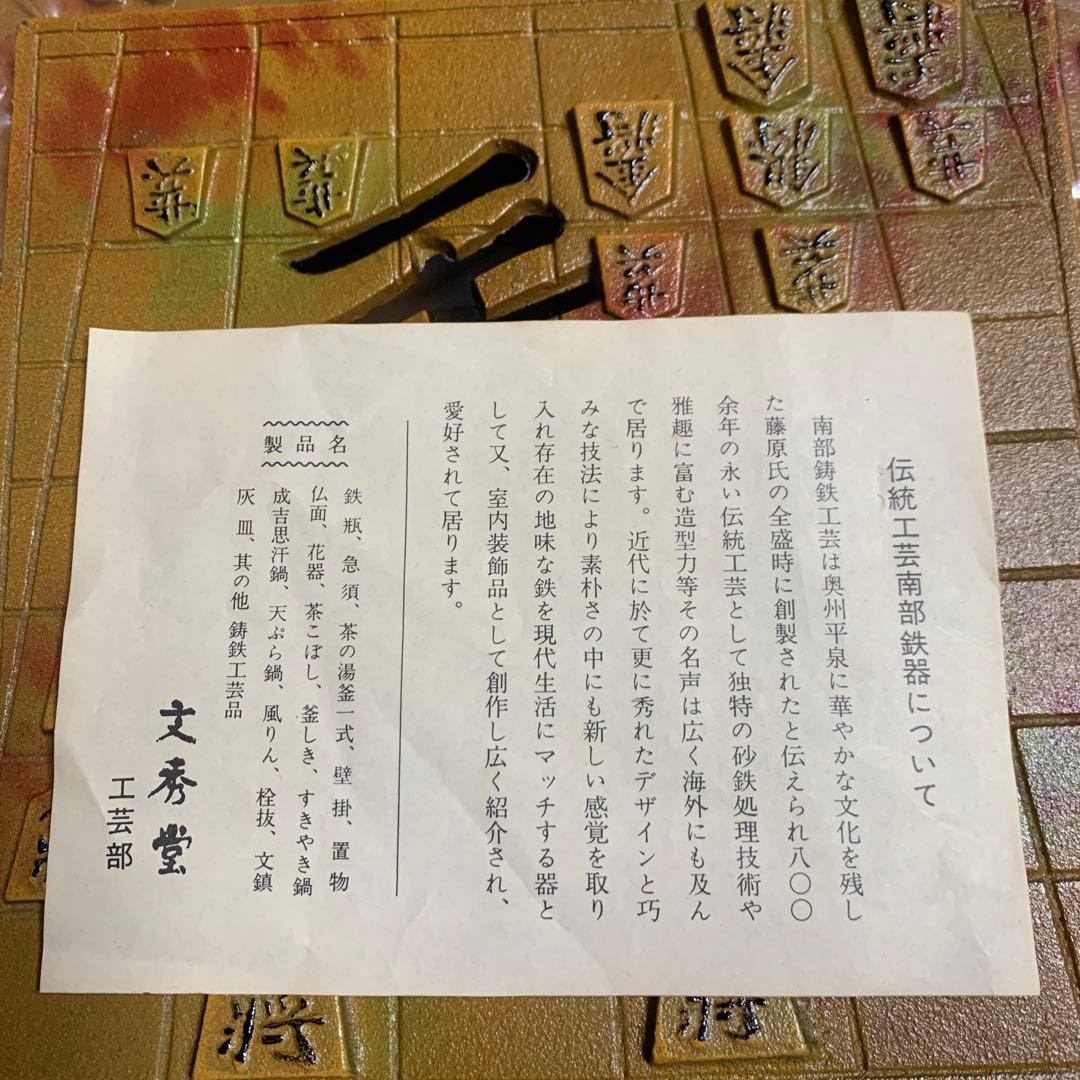 伝統工芸南部鉄器について
南部鋳鉄工芸は奥州平泉に華やかな文化を残し
た藤原氏の全盛時に創製されたと伝えられ八〇〇
余年の永い伝統工芸として独特の砂鉄処理技術や
雅趣に富む造型力等その名声は広く海外にも及ん
で居ります。近代に於て更に秀れたデザインと巧
みな技法により素朴さの中にも新しい感覚を取り
入れ存在の地味な鉄を現代生活にマッチする器と
して又、室内装飾品として創作し広く紹介され、
愛好されて居ります。
製品名
鉄瓶、急須、茶の湯釜一式、壁掛、置物
仏面、花器、茶こぼし、釜しき、すきやき鍋
成吉思汗鍋、天ぷら鍋、風りん、栓抜、文鎮
灰皿、其の他鋳鉄工芸品
文秀堂
工芸部
金将
歩兵
歩兵
金将
銀将
歩兵
歩兵
歩兵
将
将